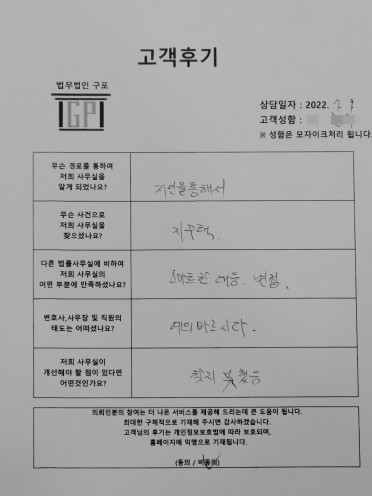 고객후기
법무법인 구포
GP
상담일자 : 2022.
고객성함 :
※ 성함은 모자이크처리 됩니다
무슨 경로를 통하여
저희 사무실을
알게 되었나요?
지인을통해서
무슨 사건으로
저희 사무실을
찾으셨나요?
지주택.
다른 법률사무실에 비하여
저희 사무실의
어떤 부분에 만족하셨나요?
스마트한 대응. 면접.
변호사,사무장 및 직원의
태도는 어떠셨나요?
예의바르시다.
저희 사무실이
개선해야 할 점이 있다면
어떤것인가요?
찾지 못했음
의뢰인분의 참여는 더 나은 서비스를 제공해 드리는데 큰 도움이 됩니다.
최대한 구체적으로 기재해 주시면 감사하겠습니다.
고객님의 후기는 개인정보보호법에 따라 보호되며,
홈페이지에 익명으로 기재됩니다.
(동의 / 비동의)